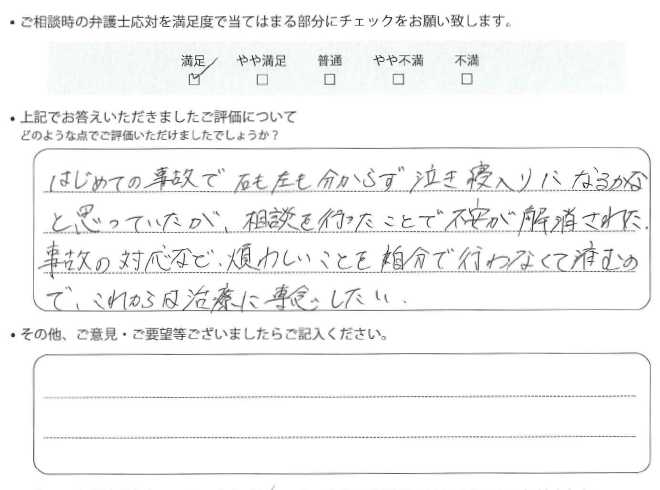 • ご相談時の弁護士応対を満足度で当てはまる部分にチェックをお願い致します。
満足 やや満足 普通 やや不満 不満
☑ □ □ □ □
• 上記でお答えいただきましたご評価について
どのような点でご評価いただけましたでしょうか？
はじめての事故で右も左も分からず泣き寝入りになるかな
と思っていたが、相談を行ったことで不安が解消された。
事故の対応など、煩わしいことを自分で行わなくて済むの
で、これからは治療に専念したい。
• その他、ご意見・ご要望等ございましたらご記入ください。